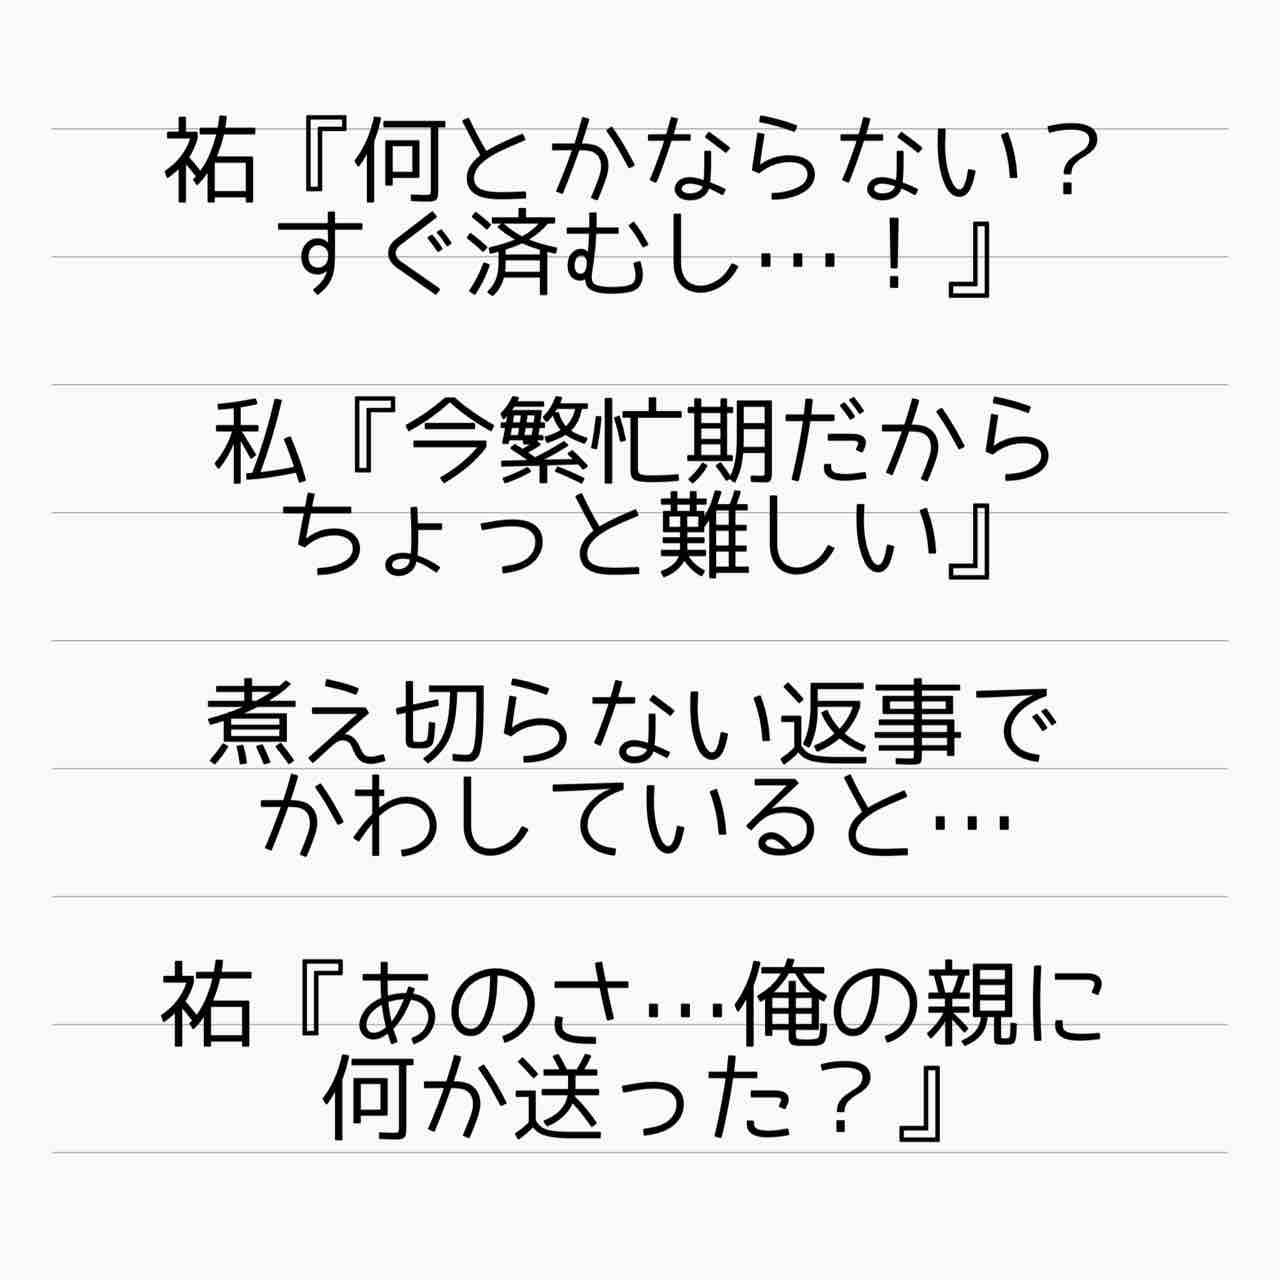 祐『何とかならない？
すぐ済むし…！』
私『今繁忙期だから
ちょっと難しい』
煮え切らない返事で
かわしていると…
祐『あのさ…俺の親に
何か送った？』